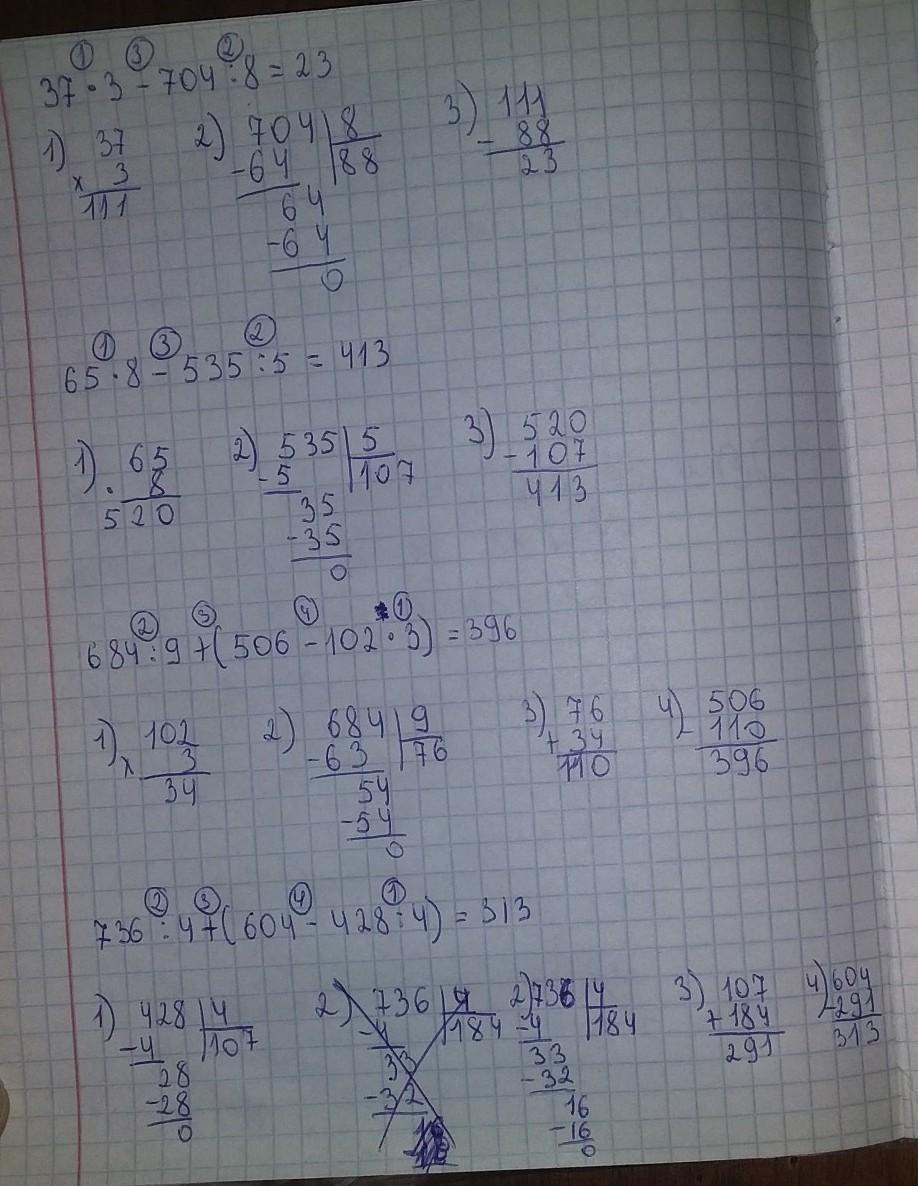 ① ③ ②
37 · 3 - 704 : 8 = 23
1) 37 2) 704 | 8 3) 111
x 3 -64 | 88 - 88
111 64 23
-64
0
① ③ ②
65 · 8 - 535 : 5 = 413
1) 65 2) 535 | 5 3) 520
· 8 -5 | 107 -107
520 35 413
-35
0
② ③ ④ ①
684 : 9 + (506 - 102 · 3) = 396
1) 102 2) 684 | 9 3) 76 4) 506
x 3 -63 | 76 + 34 - 110
34 54 110 396
-54
0
② ③ ④ ①
736 : 4 + (604 - 428 : 4) = 313
1) 428 | 4 2) 736 | 4 2) 736 | 4 3) 107 4) 604
-4 | 107 -4 | 184 -4 | 184 + 184 - 291
28 33 33 291 313
-28 -32 -32
0 16
-16
0